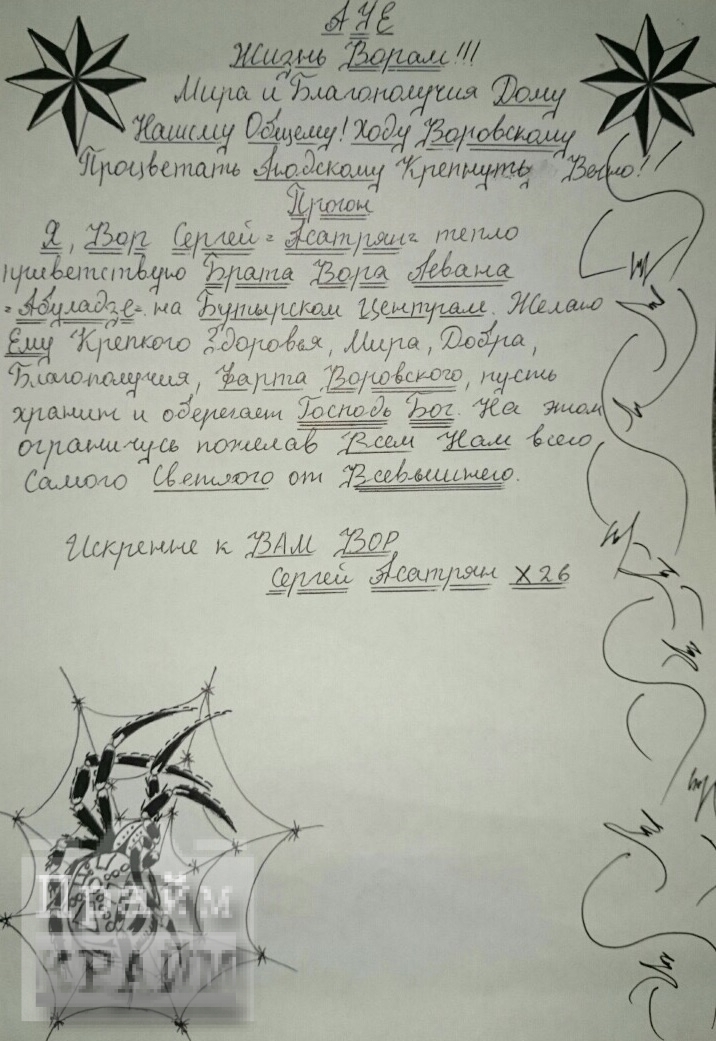 АУЕ
Жизнь Ворам!!!
Мира и Благополучия Дому
Нашему Общему! Ходу Воровскому
Процветать Людскому Крепнуть Вечно!!
Прогон
Я, Вор Сергей = Асатрян = тепло
приветствую Брата Вора Левана
= Абуладзе = на Бутырском Централе. Желаю
Ему Крепкого Здоровья, Мира, Добра,
Благополучия, Фарта Воровского, пусть
хранит и оберегает Господь Бог. На этом
ограничусь пожелав Всем Нам всего
Самого Светлого от Всевышнего.
Искренне к ВАМ ВОР
Сергей Асатрян Х 26
Прайм
КРАЙМ